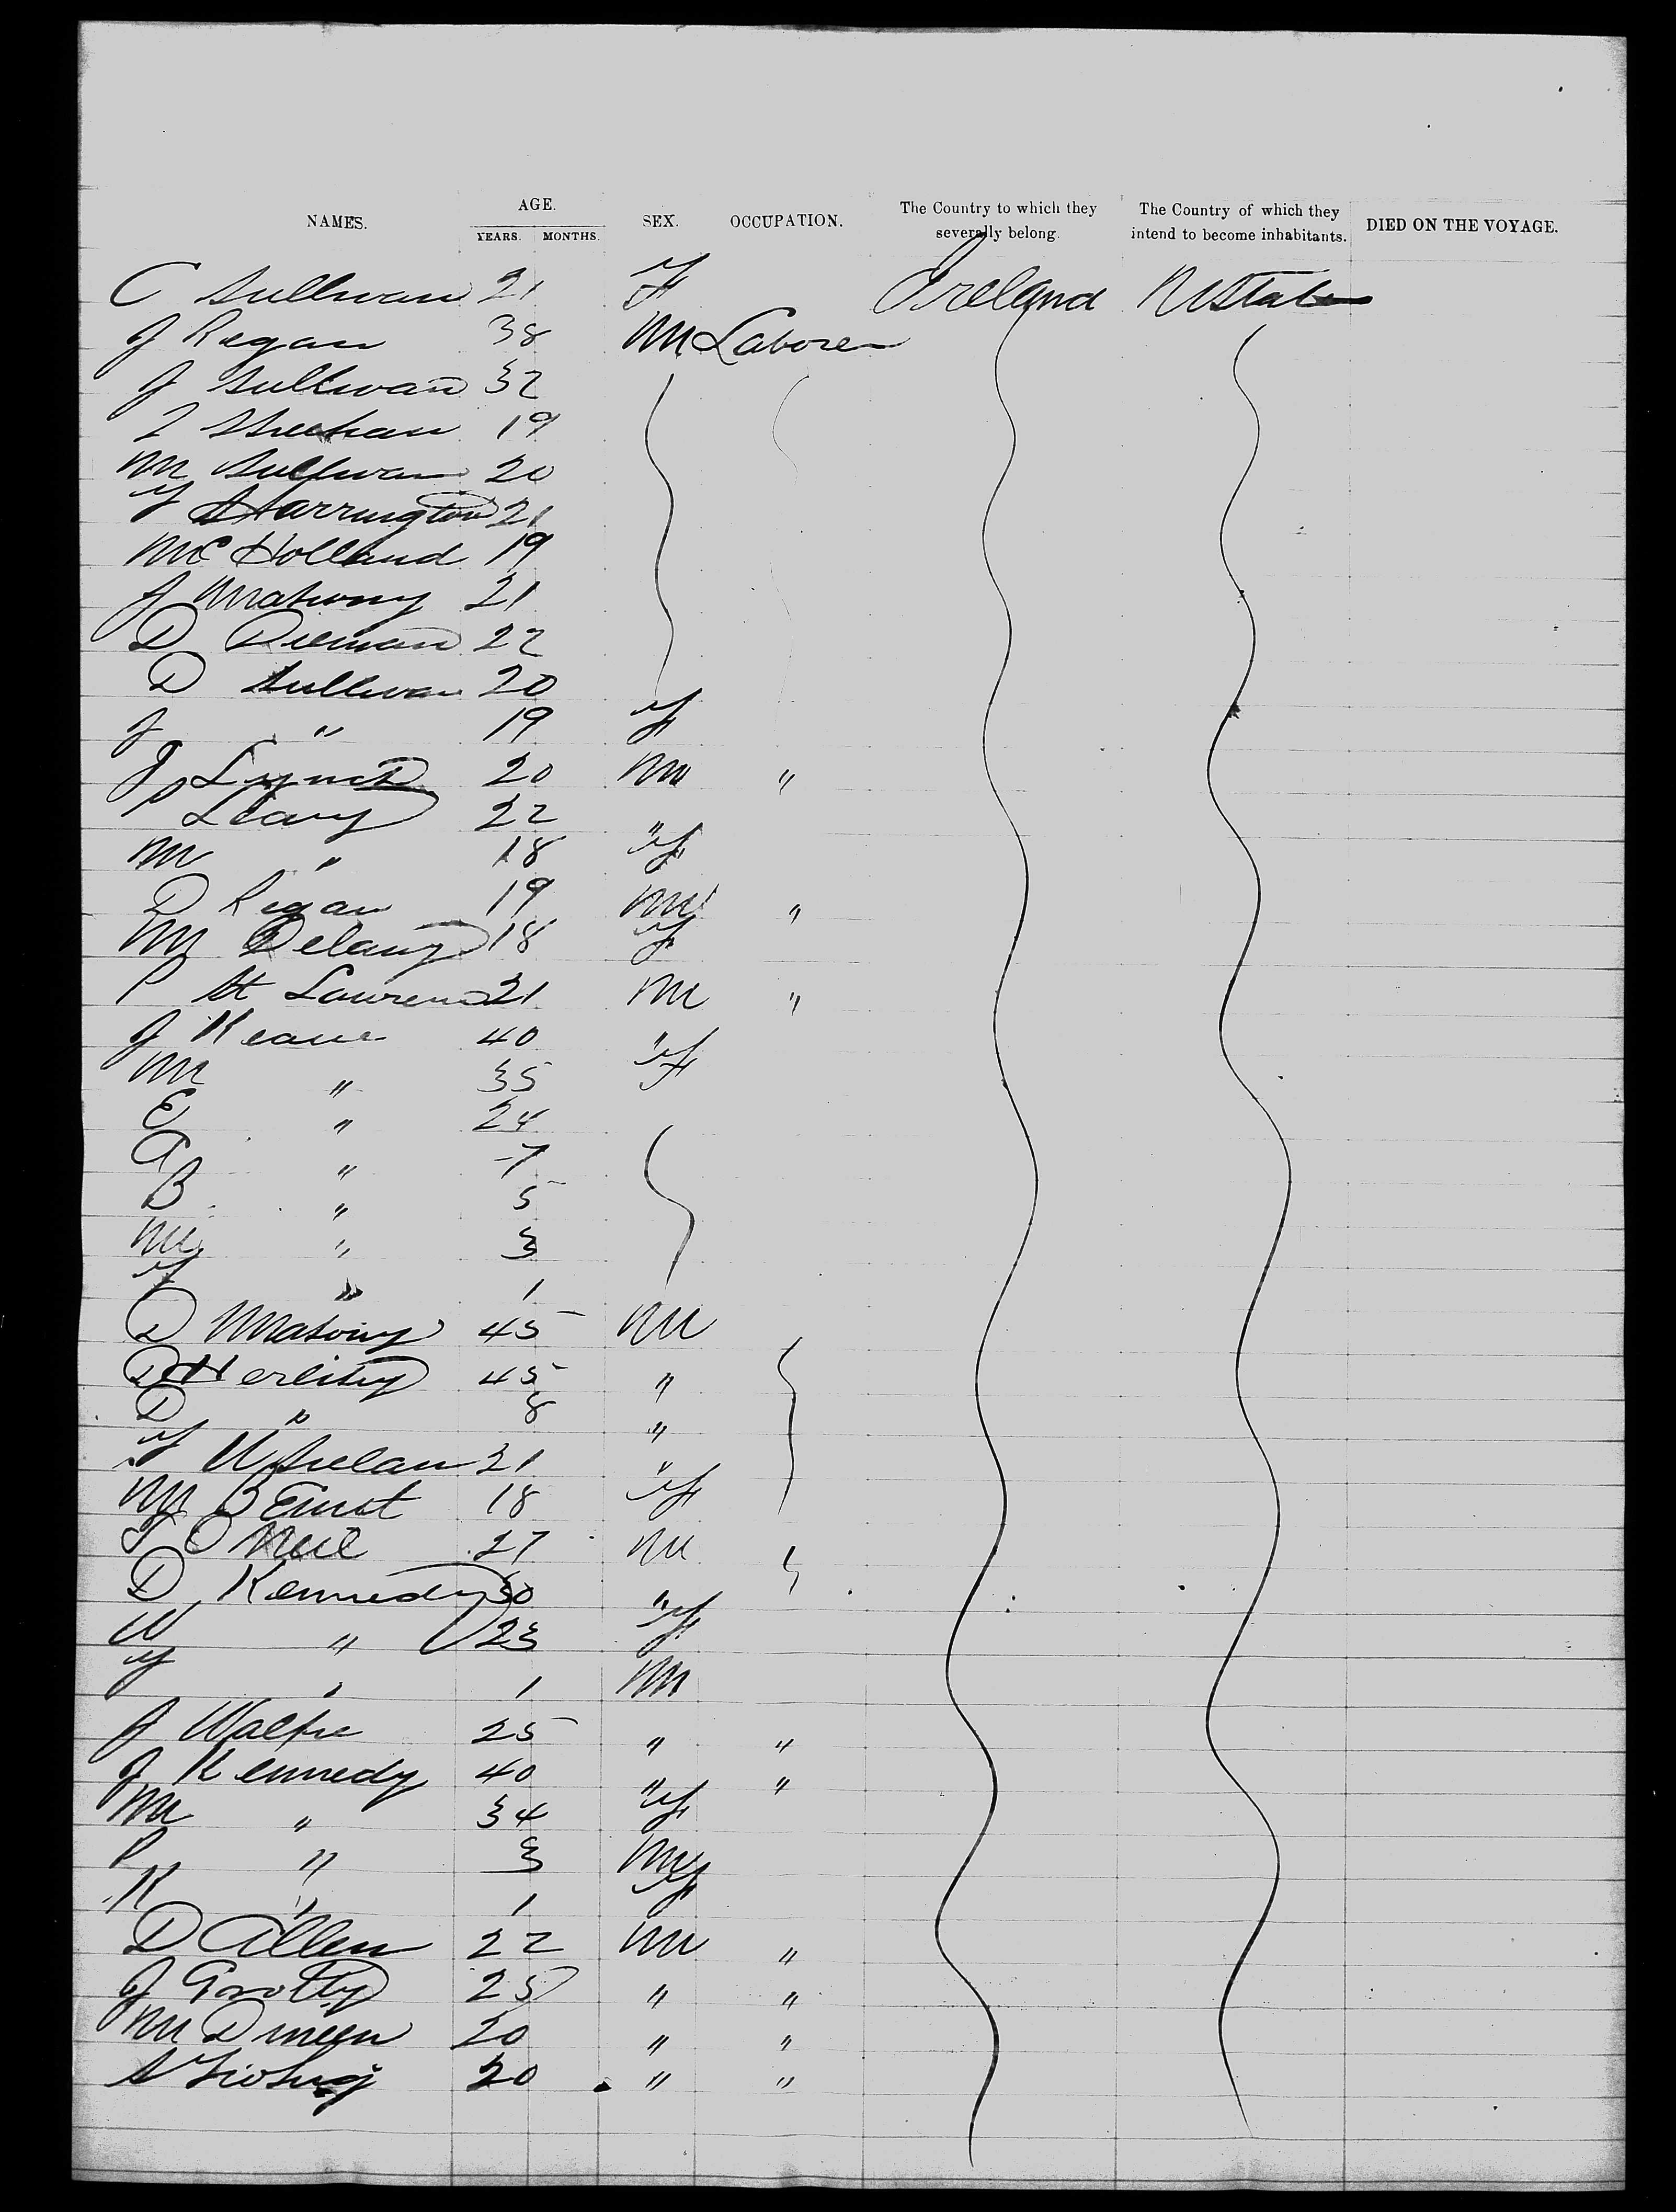 AGE.
NAMES. YEARS. MONTHS. SEX. OCCUPATION. The Country to which they severally belong. The Country of which they intend to become inhabitants. DIED ON THE VOYAGE.
C Sullivan 21 F Ireland U States
J Regan 38 M Laborer
J Sullivan 32
J Sheehan 19
M Sullivan 20
F Harrington 21
Mc Holland 19
J Mahony 21
D 22
D Sullivan 20
J " 19 F
J Lynch 20 M "
P Leary 22 "
M " 18 F
D Regan 19 M "
M Delany 18 F
P St Lawrence 21 M "
J Keane 40 "
M " 35 F
E " 24
A " 7
B " 5
M " 3
F " 1
D Mahony 45 M
D Herlihy 45 "
D " 8 "
F Whelan 21 "
M B 18 F
T O Neil 27 M
D Kennedy 30 "
W " 23 F
F " 1 M
J 25 " "
J Kennedy 40 " "
M " 34 F
P " 3 M
K " 1 F
D Allen 22 M "
J Grotty 25 " "
M Dineen 20 " "
20 " "